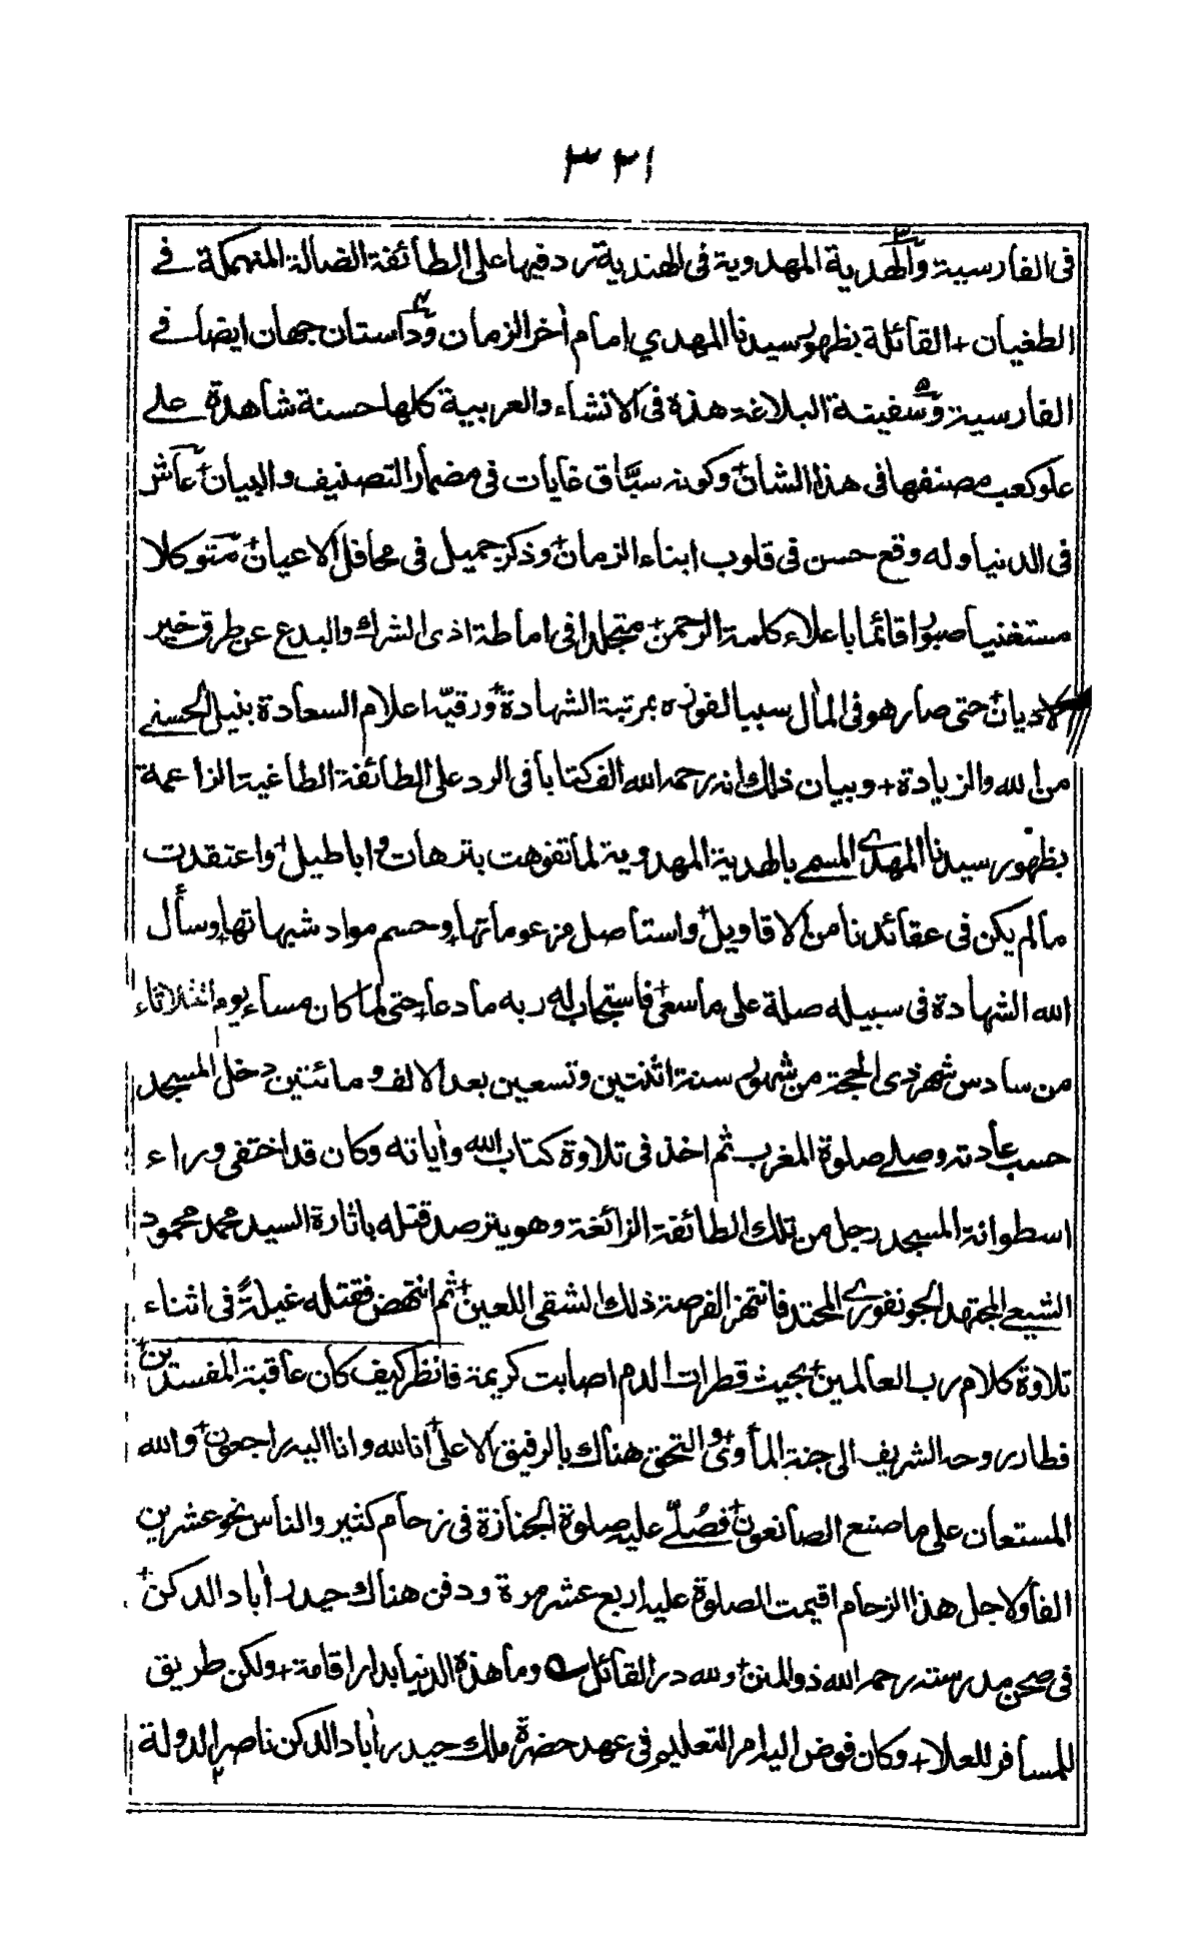 ٣٢١
فى الفارسية و٣الهدية المهدوية فى الهندية رد فيها على الطائفة الضالة المنهمكة فے
الطغيان + القائلة بظهور سيدنا المهدي امام اٰخر الزمان و٤داستان جهان ايضا فے
الفارسية و٥سفينة البلاغة هذه فى الانشاء والعربية كلها حسنة شاهدة علے
علو كعب مصنفها فى هذا الشان + وكونه سبَّاق غايات فى مضمار التصنيف والبيان + عاش
فى الدنيا وله وقع حسن فى قلوب ابناء الزمان + وذكر جميل فى محافل الاعيان + متوكلا
مستغنيا صبورا قائما باعلاء كلمة الرحمن + متجلدا فى اماطة اذى الشرك والبدع عن طرق خير
الاديان + حتى صار هو فى المٰال سببا لفوزه بمرتبة الشهادة + ورقيّه اعلام السعادة بنيل الحسنے
من الله والزيادة + وبيان ذلك انه رحمه الله الف كتابا فى الرد على الطائفة الطاغية الزاعمة
بظهور سيدنا المهدي المسمے بالهدية المهدوية لما تفوهت بترهات و اباطيل + واعتقدت
ما لم يكن فى عقائدنا من الاقاويل + واستاصل مزعوماتها + وحسم مواد شبهاتها + وسأل
الله الشهادة فى سبيله صلة على ما سعى + فاستجاب له ربه ما دعا + حتى لما كان مساء يوم الثلاثاء
من سادس شهر ذى الحجة من شهور سنة اثنتين وتسعين بعد الالف و مائتين دخل المسجد
حسب عادته وصلے صلوة المغرب ثم اخذ فى تلاوة كتاب الله واٰياته وكان قد اختفى وراء
اسطوانة المسجد رجل من تلك الطائفة الزائغة وهو يترصد قتله باثارة السيد محمد محمود
الشيعے المجتهد الجونفوري المحتد فانتهز الفرصة ذلك الشقى اللعين + ثم انتهض فقتله غيلةً فى اثناء
تلاوة كلام رب العالمين + بحيث قطرات الدم اصابت كريمة فانظر كيف كان عاقبة المفسدين +
فطار روحه الشريف الى جنة المأوى + والتحق هناك بالرفيق الاعلى + انا لله وانا اليه راجعون + والله
المستعان على ما صنع الصانعون + فصُلّے عليه صلوة الجنازة فى زحام كثير والناس نحو عشرين
الفا ولاجل هذا الزحام اقيمت الصلوة عليه اربع عشر مرة ودفن هناك حيدر اٰباد الدكن +
فى صحن مدرسته رحمه الله ذو المنن + ولله در القائل ؎ وما هذه الدنيا بدار اقامة + ولكن طريق
للمسافر للعلا + وكان فوض اليه امر التعليم فى عهد حضرة ملك حيدر اٰباد الدكن ناصر الدولة
٢